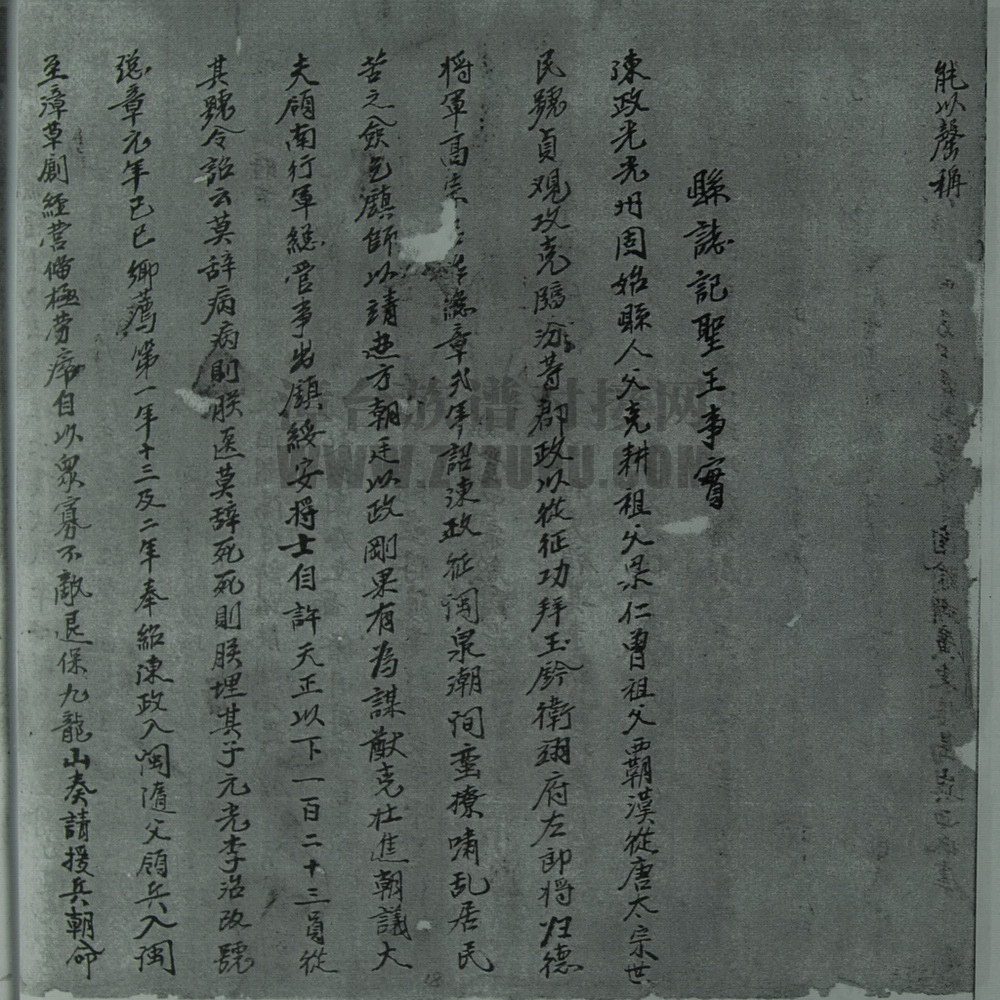 能以罄稱
縣誌記聖王事實
陳政光光州固始縣人父克耕祖父果仁曾祖父霸漢從唐太宗世
民號貞觀攻克臨汾等郡政以從征功拜玉鈐衛翊府左郎將归德
將軍高宗總章九年詔陳政征闽泉潮间蛮撩啸乱居民
苦之僉乞鎮帥以請朝廷以政剛果有為謀猷克壮進朝議大
夫領南行軍總管事出鎮綏安將士自許天正以下一百二十三員從
其號令詔云莫辞病病則朕医莫辞死死則朕埋其子元光李治改號
総章元年己巳鄉薦第一年十三及二年奉紹陳政入闽隨父領兵入闽
至漳草創經营備極劳瘁自以众寡不敵退保九龍山奏請援兵朝命
漳台族谱对接网
WWW.ZTZUPU.COM
18